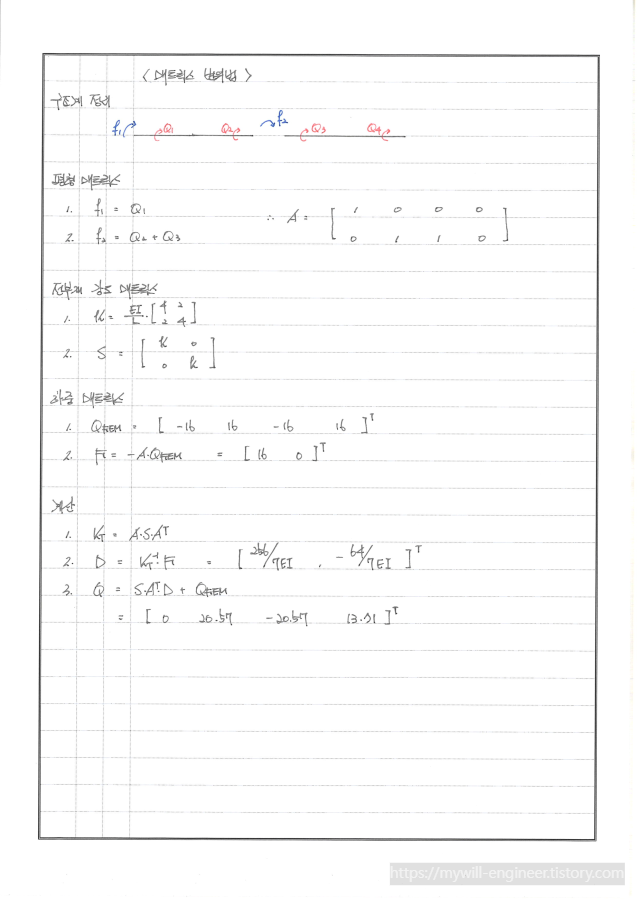 < 매트릭스 변위법 >
구조계 정리
f₁ Q₁ Q₂ f₂ Q₃ Q₄
평형 매트릭스
1. f₁ = Q₁
2. f₂ = Q₂ + Q₃
∴ A = [ 1 0 0 0
0 1 1 0 ]
전부재 강도 매트릭스
1. K = EI/L · [ 4 2
2 4 ]
2. S = [ K 0
0 K ]
하중 매트릭스
1. QFEM = [ -16 16 -16 16 ]ᵀ
2. F = -A·QFEM = [ 16 0 ]ᵀ
계산
1. KT = A·S·Aᵀ
2. D = KT⁻¹·F = [ 256/7EI , -64/7EI ]ᵀ
3. Q = S·Aᵀ·D + QFEM
= [ 0 20.57 -20.57 13.71 ]ᵀ
https://mywill-engineer.tistory.com